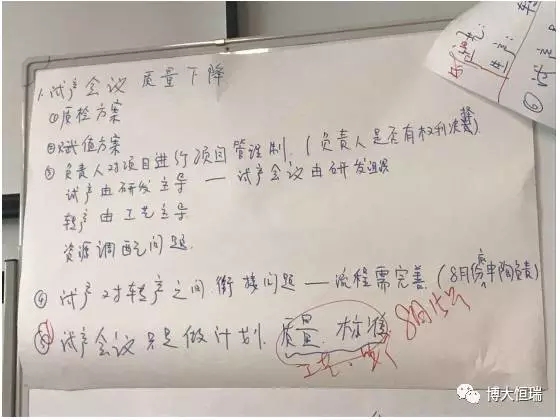 1.试产会议 质量下降
①质检方案
②赋值方案
③负责人对项目进行项目管理制.(负责人是否有权利决策)
试产由研发主导 — 试产会议由研发组织
转产由工艺主导
资源调配问题.
④试产对转产之间衔接问题 — 流程需完善.(8月份 申陶负责)
⑤试产会议只是做计划.质量.标准.
8月15号
工艺.
⑥试产
博大恒瑞